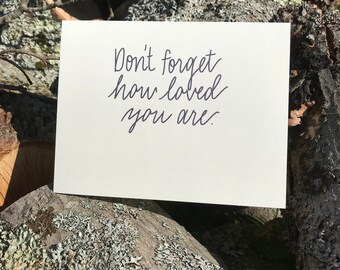 Don't forget
how loved
you are.